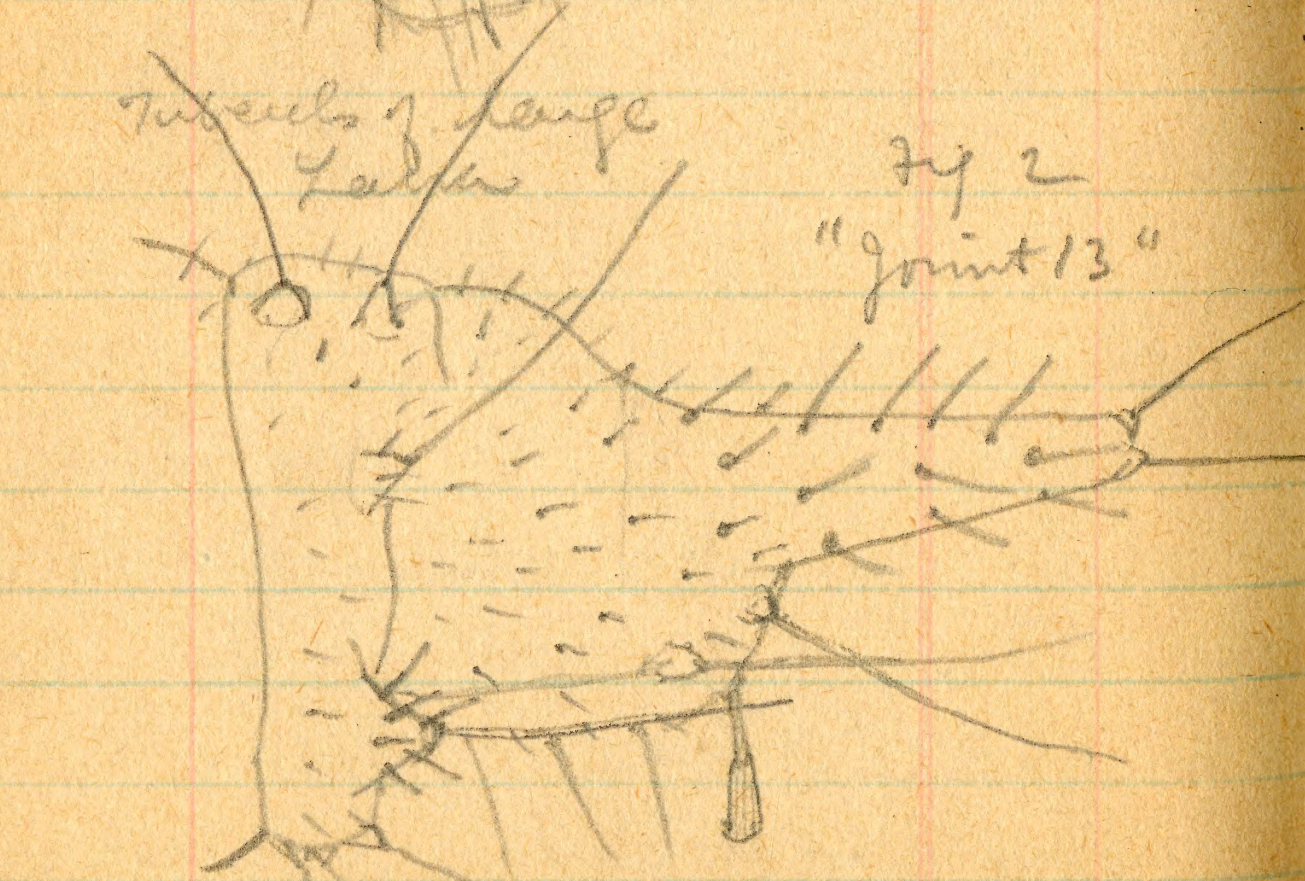 Tubercles of large
Larva
Fig 2
"Joint 13"